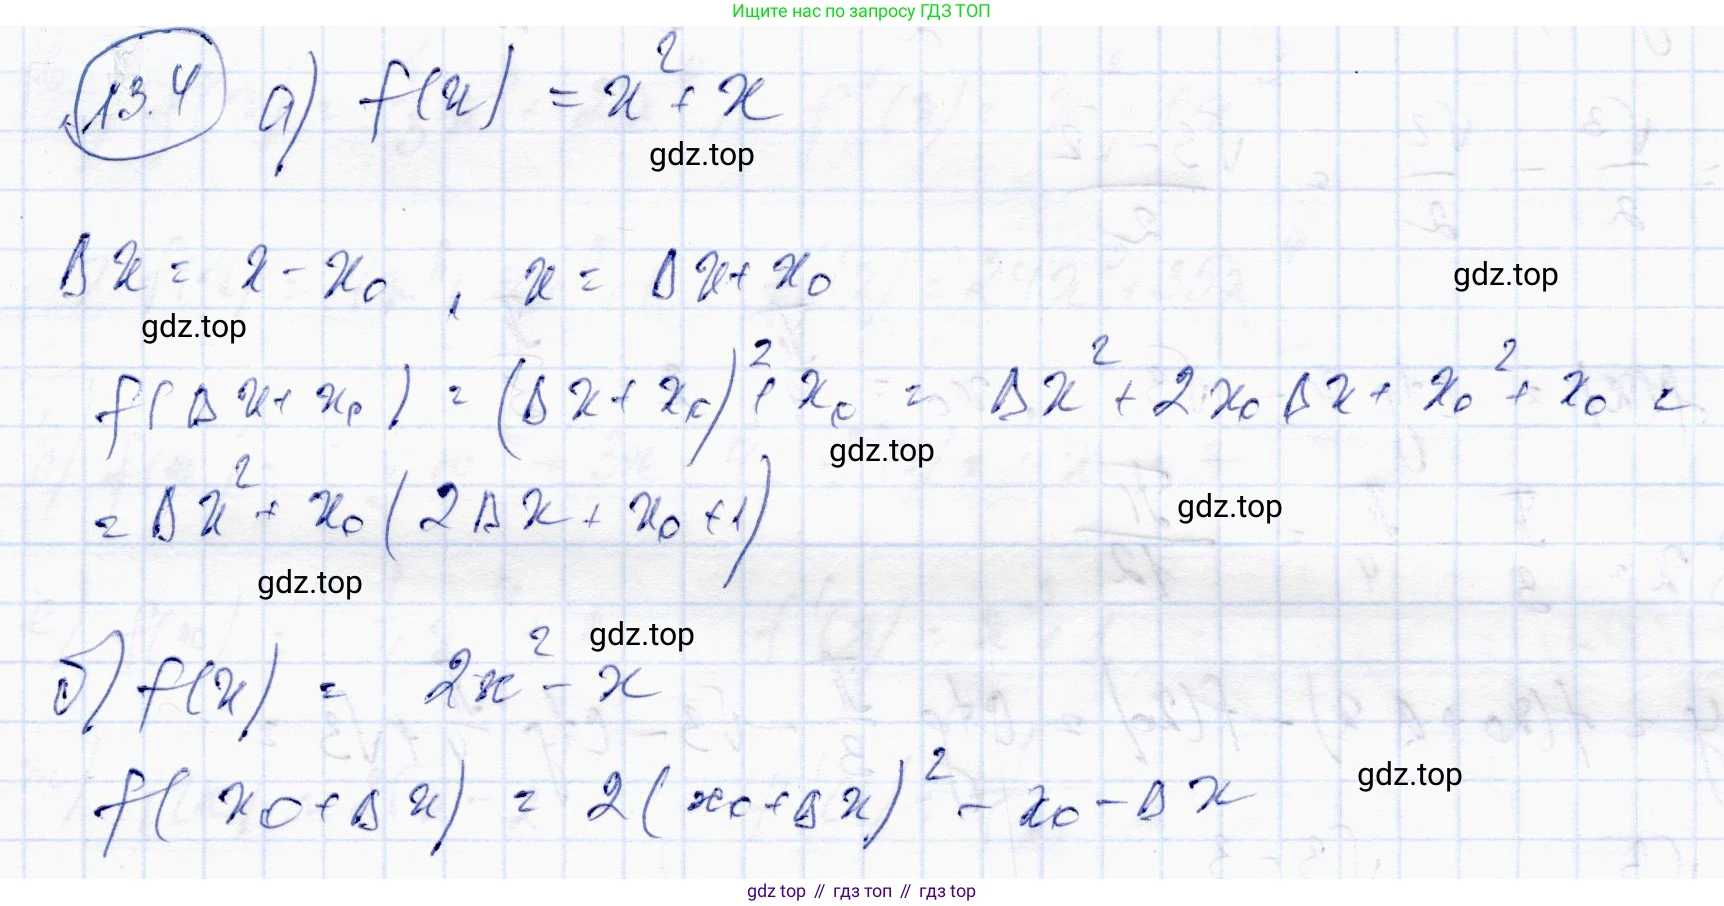 Ищите нас по запросу ГДЗ ТОП
13.4 а) f(x) = x² + x
gdz.top
Δx = x - x₀ , x = Δx + x₀
gdz.top
gdz.top
f(Δx + x₀) = (Δx + x₀)² + x₀ = Δx² + 2x₀Δx + x₀² + x₀ =
gdz.top
= Δx² + x₀(2Δx + x₀ + 1)
gdz.top
gdz.top
gdz.top
б) f(x) = 2x² - x
gdz.top
f(x₀ + Δx) = 2(x₀ + Δx)² - x₀ - Δx
gdz top // гдз топ // гдз top